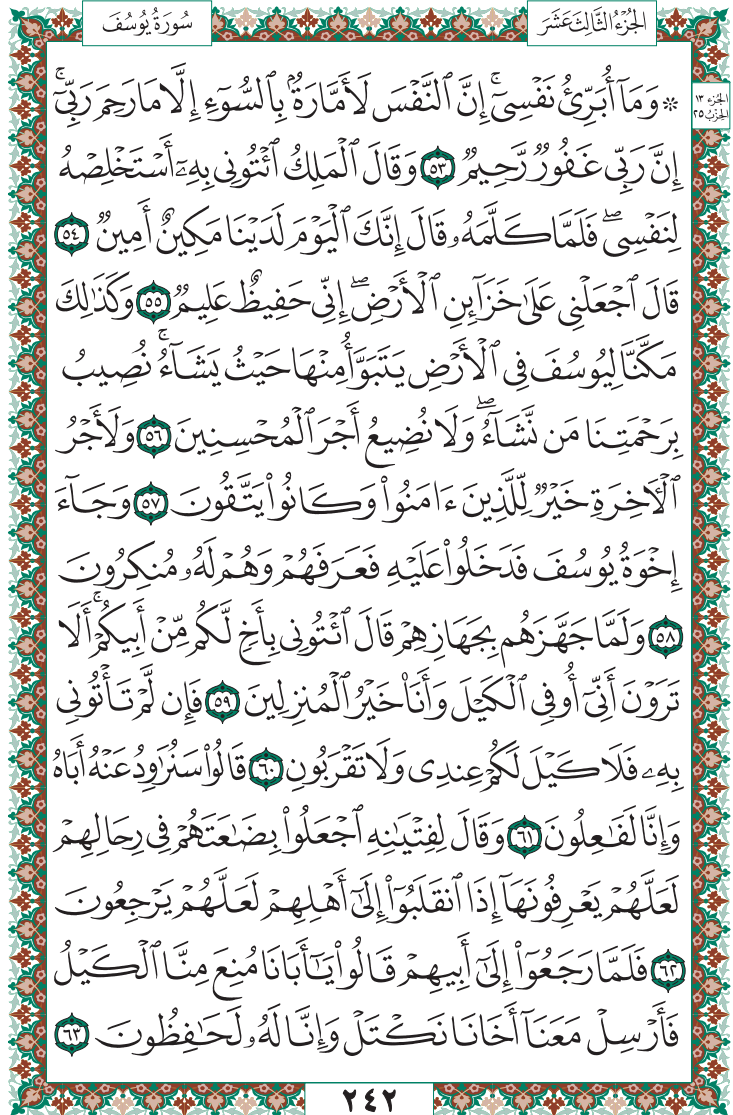 سُورَةُ يُوسُفَ
الجُزْءُ الثَّالِثَ عَشَرَ
الجُزء ١٣
الحِزْب ٢٥
۞ وَمَآ أُبَرِّئُ نَفْسِىٓ ۚ إِنَّ ٱلنَّفْسَ لَأَمَّارَةٌۢ بِٱلسُّوٓءِ إِلَّا مَا رَحِمَ رَبِّىٓ ۚ
إِنَّ رَبِّى غَفُورٌ رَّحِيمٌ ٥٣ وَقَالَ ٱلْمَلِكُ ٱئْتُونِى بِهِۦٓ أَسْتَخْلِصْهُ
لِنَفْسِى ۖ فَلَمَّا كَلَّمَهُۥ قَالَ إِنَّكَ ٱلْيَوْمَ لَدَيْنَا مَكِينٌ أَمِينٌ ٥٤
قَالَ ٱجْعَلْنِى عَلَىٰ خَزَآئِنِ ٱلْأَرْضِ ۖ إِنِّى حَفِيظٌ عَلِيمٌ ٥٥ وَكَذَٰلِكَ
مَكَّنَّا لِيُوسُفَ فِى ٱلْأَرْضِ يَتَبَوَّأُ مِنْهَا حَيْثُ يَشَآءُ ۚ نُصِيبُ
بِرَحْمَتِنَا مَن نَّشَآءُ ۖ وَلَا نُضِيعُ أَجْرَ ٱلْمُحْسِنِينَ ٥٦ وَلَأَجْرُ
ٱلْـَٔاخِرَةِ خَيْرٌ لِّلَّذِينَ ءَامَنُوا۟ وَكَانُوا۟ يَتَّقُونَ ٥٧ وَجَآءَ
إِخْوَةُ يُوسُفَ فَدَخَلُوا۟ عَلَيْهِ فَعَرَفَهُمْ وَهُمْ لَهُۥ مُنكِرُونَ
٥٨ وَلَمَّا جَهَّزَهُم بِجَهَازِهِمْ قَالَ ٱئْتُونِى بِأَخٍ لَّكُم مِّنْ أَبِيكُمْ ۚ أَلَا
تَرَوْنَ أَنِّىٓ أُوفِى ٱلْكَيْلَ وَأَنَا۠ خَيْرُ ٱلْمُنزِلِينَ ٥٩ فَإِن لَّمْ تَأْتُونِى
بِهِۦ فَلَا كَيْلَ لَكُمْ عِندِى وَلَا تَقْرَبُونِ ٦٠ قَالُوا۟ سَنُرَٰوِدُ عَنْهُ أَبَاهُ
وَإِنَّا لَفَـٰعِلُونَ ٦١ وَقَالَ لِفِتْيَـٰنِهِ ٱجْعَلُوا۟ بِضَـٰعَتَهُمْ فِى رِحَالِهِمْ
لَعَلَّهُمْ يَعْرِفُونَهَآ إِذَا ٱنقَلَبُوٓا۟ إِلَىٰٓ أَهْلِهِمْ لَعَلَّهُمْ يَرْجِعُونَ
٦٢ فَلَمَّا رَجَعُوٓا۟ إِلَىٰٓ أَبِيهِمْ قَالُوا۟ يَـٰٓأَبَانَا مُنِعَ مِنَّا ٱلْكَيْلُ
فَأَرْسِلْ مَعَنَآ أَخَانَا نَكْتَلْ وَإِنَّا لَهُۥ لَحَـٰفِظُونَ ٦٣
٢٤٢